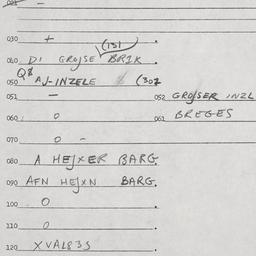 001 —
030 +
(131
040 DI GROJSE BRIK
050 AJ-INZELE (307
051 — 052 GROJSER INZL
060 0 061 BREGES
070 0 -
080 A HEJXER BARG
090 AFN HEJXN BARG
100 0
110 0
120 XVAL83S